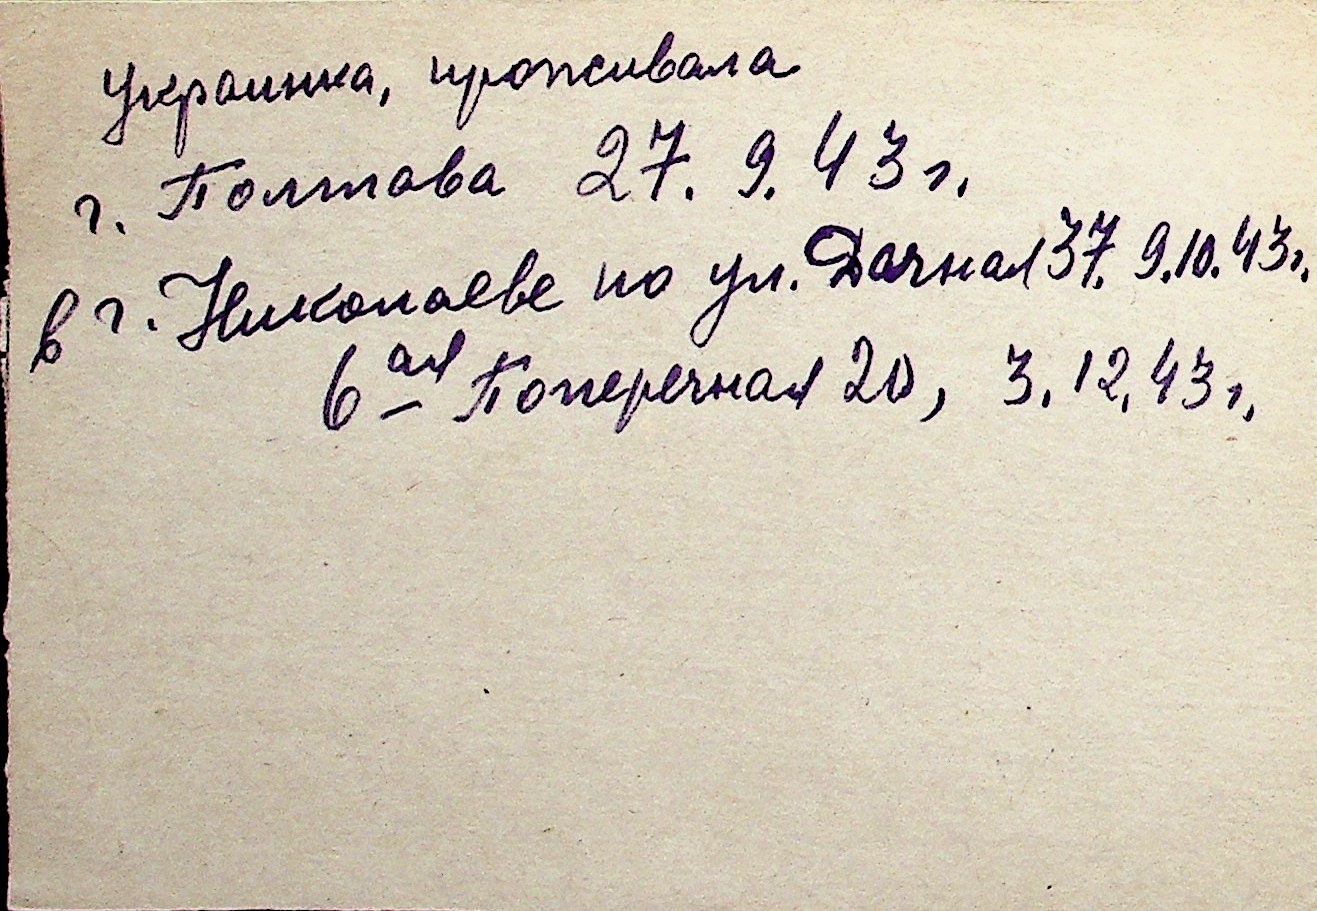 Украинка, проживала
г. Полтава 27. 9. 43 г.
в г. Николаеве по ул. Дачная 37. 9.10.43г.
6 ая Поперечная 20, 3.12.43 г.